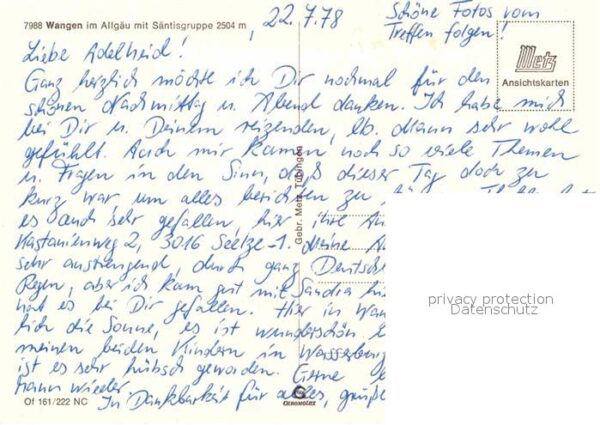 7988 Wangen im Allgäu mit Säntisgruppe 2504 m
, 22.7.78
Schöne Fotos vom
Treffen folgen!
Metz
Ansichtskarten
Liebe Adelheid!
Ganz herzlich möchte ich Dir nochmal für den
schönen Nachmittag u. Abend danken. Ich habe mich
bei Dir u. Deinem reizenden, lb. Mann sehr wohl
gefühlt. Auch mir kamen noch so viele Themen
u. Fragen in den Sinn, daß dieser Tag doch zu
kurz war, um alles berichten zu
es auch sehr gefallen hier ihre
Kastanienweg 2, 3016 Seelze-1. Meine
sehr anstrengend, durch ganz Deutsch
Regen, aber ich kam gut mit Sandra
hat es bei Dir gefallen. Hier in Wan
lich die Sonne, es ist wunderschön
meinen beiden Kindern in Wasserburg
ist es sehr hübsch geworden. Gerne
wann wieder.
In Dankbarkeit für alles, grüße
Gebr. Metz Tübingen
privacy protection
Datenschutz
Of 161/222 NC